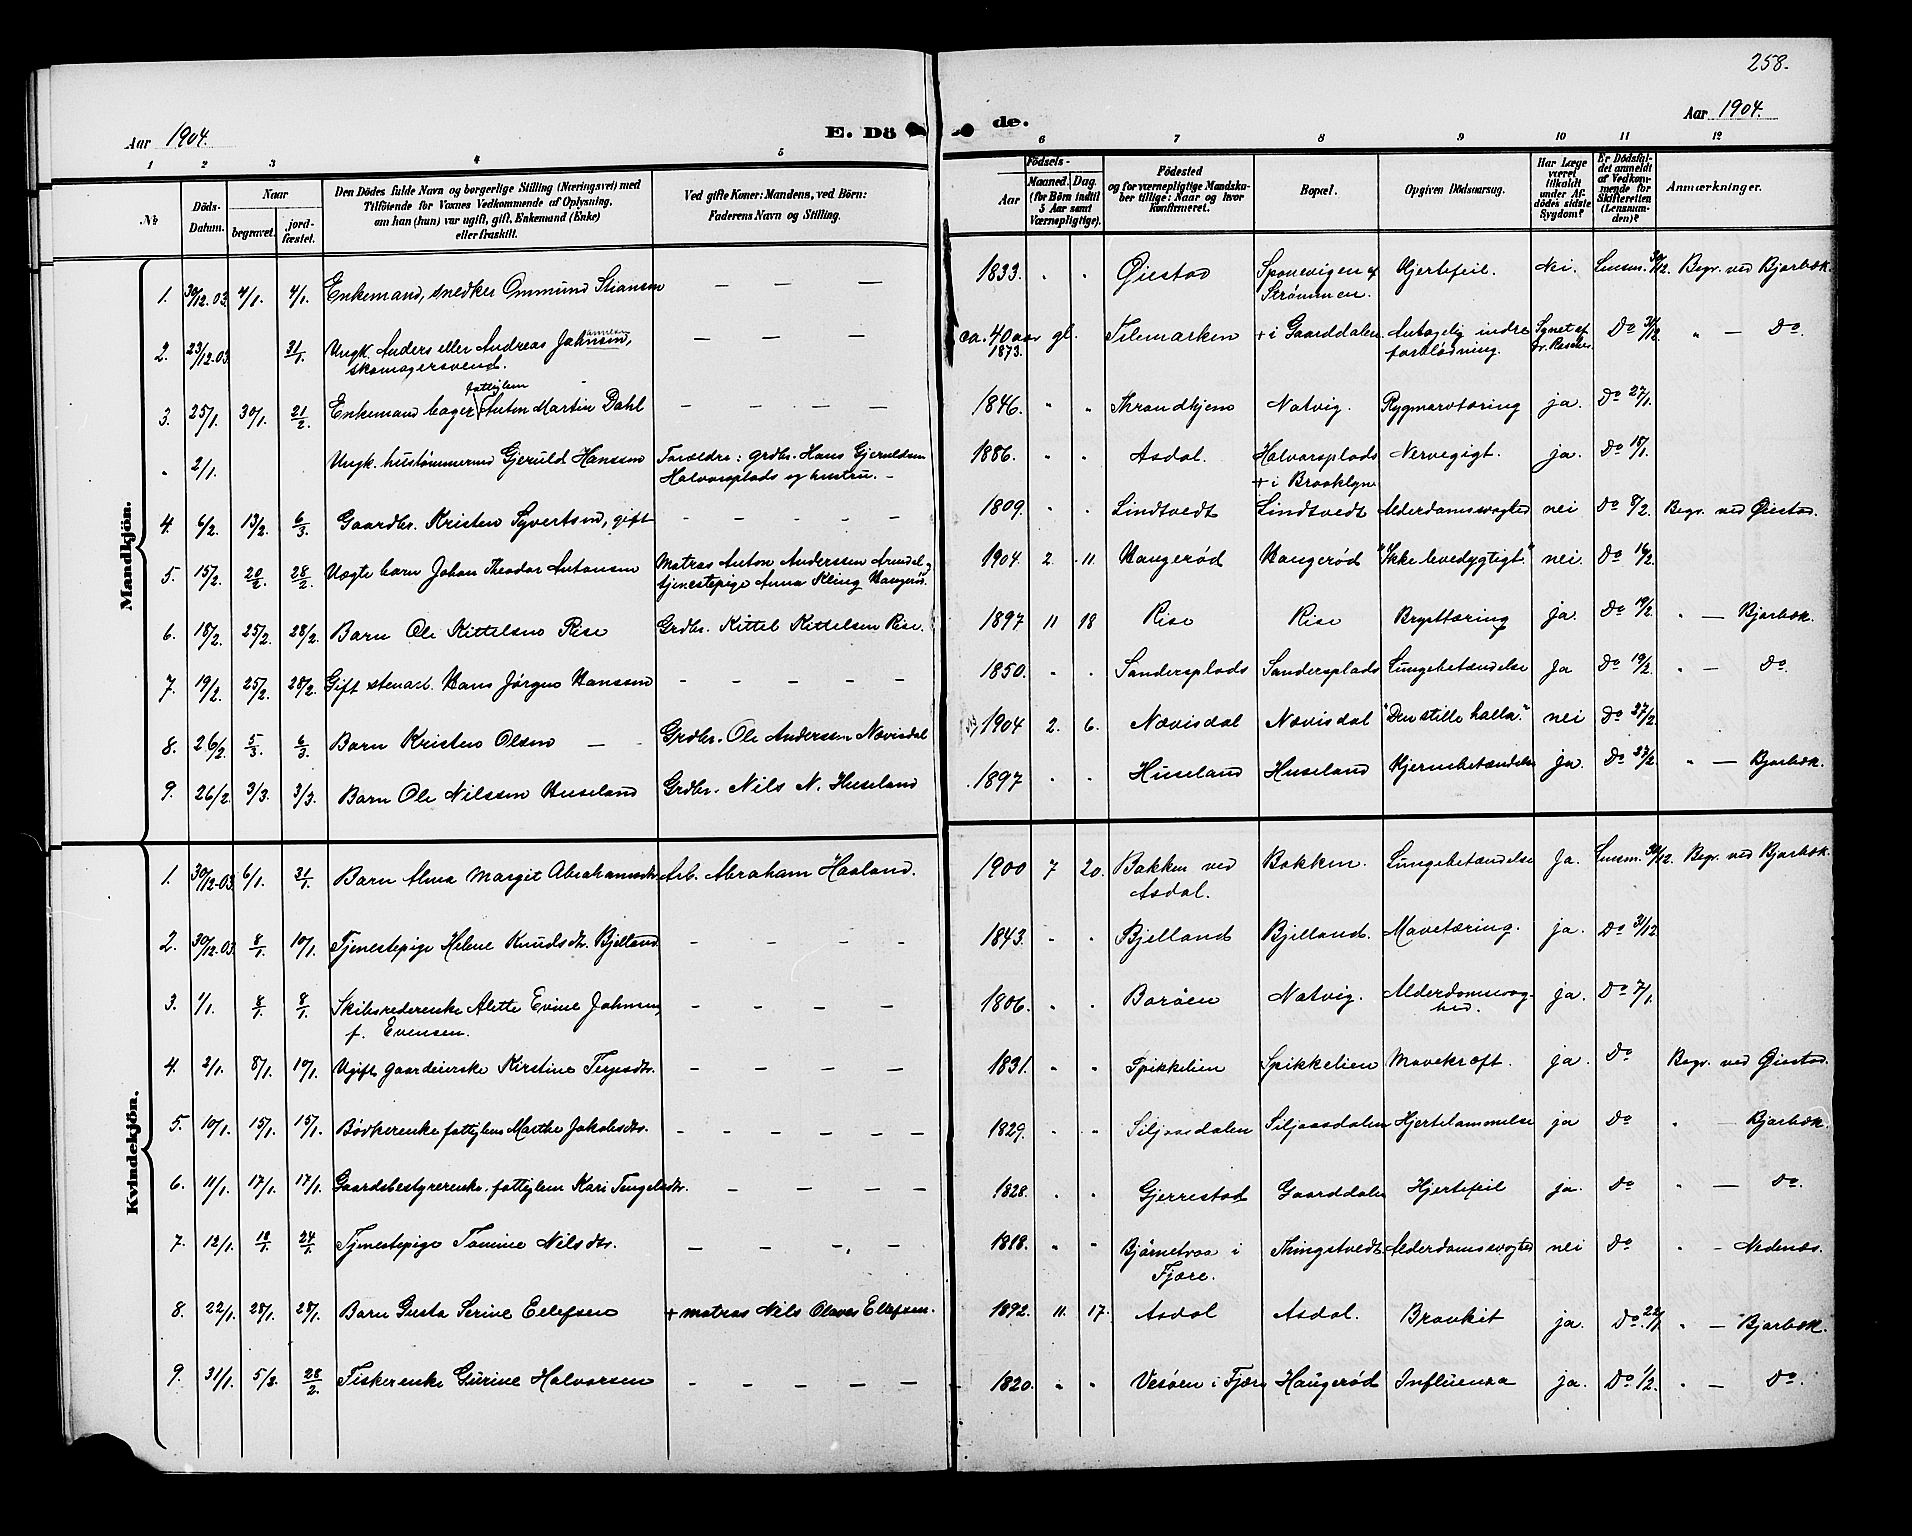 258.
Aar 1904.
E. Dö de.
Aar 1904.
1 2 3 4 5 6 7 8 9 10 11 12
№
Döds-Datum.
Naar
begravet.
jord-fæstet.
Den Dödes fulde Navn og borgerlige Stilling (Næringsvei) med
Tilföiende for Voxnes Vedkommende af Oplysning,
om han (hun) var ugift, gift, Enkemand (Enke)
eller fraskilt.
Ved gifte Koner: Mandens, ved Börn:
Faderens Navn og Stilling.
Födsels-
Aar
Maaned. Dag.
(for Börn indtil
5 Aar samt
Værnepligtige).
Födested
og for værnepligtige Mandska-
ber tillige: Naar og hvor
Konfirmeret.
Bopæl.
Opgiven Dödsaarsag.
Har Læge
været
tilkaldt
under Af-
dödes sidste
Sygdom?
Er Dödsfal-
det anmeldt
af Vedkom-
mende for
Skifteretten
(Lensman-
den)?
Anmærkninger.
Mandkjön.
1. 30/12.03. 4/1. 4/1. Enkemand, snedker Ommund Stiansen — — — 1833. " " Øiestad Sponevigen af Strømmen. Hjertefeil. Nei. Lensm. 30/12. Begr. ved Bjorbæk.
2. 23/12.03 31/1. Ungk. Anders eller Andreas Johnsen, skomagersvend. — — — ca. 40 aar gl. 1873. Tilemarken + i Gaarddalen Antagelig indre forblødning. Synet af Dr. Do 31/12. " — Do.
3. 25/1. 30/1. 21/2. Enkemand bager fattiglem Anton Martin Dahl — — — 1846. " " Thrandhjem Natvig. Rygmarvtæring ja. Do 27/1.
" 2/1. Ungk. hustømmermd Gjeruld Hanssen Forældre: grdbr. Hans Gjeruldsen Halvorsplads og hustru. — 1886. " " Asdal. Halvorsplads + i Brooklyn Nervegigt. ja. Do 18/1.
4. 6/2. 13/2. 6/3. Gaardbr. Kristen Syvertsen, gift — — — — 1809. " " Lindtvedt Lindtvedt Alderdomssvaghed nei Do 8/2. Begr. ved Øiestad.
5. 15/2. 20/2. 28/2. Uægte barn Johan Theodor Antonsen Matros Anton Anderssen Arendal og tjenestepige Anna Kling Haugerød. 1904 2. 11. Haugerød Haugerød "Ikke levedygtigt." nei. Do 16/2.
6. 18/2. 25/2. 28/2. Barn Ole Kittelsen Rise Grdbr. Kittel Kittelsen Rise. 1897 11 18 Rise Rise Brysttæring ja. Do 19/2 " — Bjorbæk.
7. 19/2. 25/2. 28/2. Gift stenarb. Hans Jørgen Hanssen — — — — — 1850. " " Sandersplads Sandersplads Lungebetændelse Ja Do 19/2. " — Do.
8. 26/2. 5/3. 6/3. Barn Kristen Olsen — — Grdbr. Ole Anderssen Nævisdal 1904 2. 6. Nævisdal Nævisdal "Den stille halla." nei Do 27/2
9. 26/2. 3/3. 3/3. Barn Ole Nilssen Huseland Grdbr. Nils N. Huseland 1897 " " Huseland Huseland Hjernebetændelse ja. Do 27/2 " — Bjorbæk.
Kvindekjön.
1. 30/12.03. 6/1. 31/1. Barn Alma Margit Abrahamsdtr. Arb. Abraham Haaland. 1900 7 20. Bakken ved Asdal. Bakken. Lungebetændelse Ja. Lensm. 30/12. Begr. ved Bjorbæk.
2. 30/12.03. 8/1. 10/1. Tjenestepige Helene Knudsdtr. Bjelland. — — — — 1843. " " Bjelland Bjelland. Mavetæring. ja. Do 31/12
3. 1/1. 8/1. 8/1. Skibsrederenke Alette Evine Johnsen, f. Evensen. — — — — 1806. " " Borøen Natvig. Alderdomssvaghed. ja. Do 7/1.
4. 2/1. 8/1. 10/1. Ugift gaardeierske Kirstine Terjesdtr. — — — — 1831. " " Spikkelien Spikkelien Mavekræft. ja. Do Begr. ved Øiestad.
5. 10/1. 15/1. 15/1. Bødkerenke fattiglem Marthe Jakobsdtr. — — — — — — 1829. " " Siljaasdalen Siljaasdalen Hjertelammelse ja Do " — Bjorbæk.
6. 11/1. 17/1. 17/1. Gaardsbestyrerenke, fattiglem Kari Tengelsdtr. — — — — 1828. " " Gjerrestad Gaarddalen Hjertefeil ja. Do " — Do.
7. 12/1. 18/1. 24/1. Tjenestepige Tomine Nilsdtr. — — — — 1818. " " Bjørnetraa i Fjære. Thingstvedt Alderdomssvaghed nei Do " — Nedenæs.
8. 22/1. 28/1. 28/1. Barn Gusta Serine Ellefsen + matros Nils Olaves Ellefsen. 1892. 11. 17. Asdal Asdal. Bronkit ja. Do. 22/1 " — Bjorbæk.
9. 31/1. 5/2. 28/2. Fiskerenke Gurine Halvorsen — — — — — 1820. " " Vesøen i Fjære Haugerød Influensa ja. Do 1/2. " — Do.